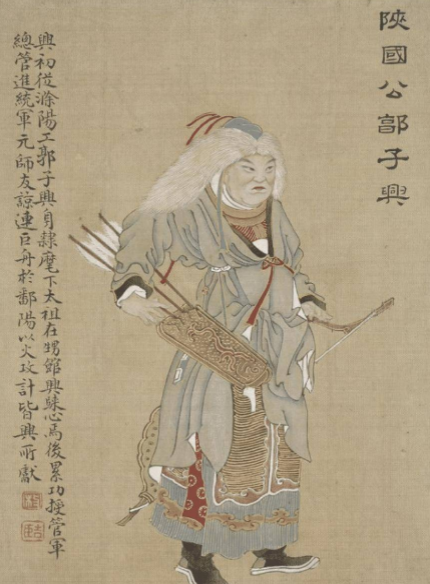 陝國公郭子興
興初從滁陽王郭子興身隷麾下太祖在甥館興歸心焉後累功授管軍
總管進統軍元帥友諒連巨舟於鄱陽以火攻計皆興所獻